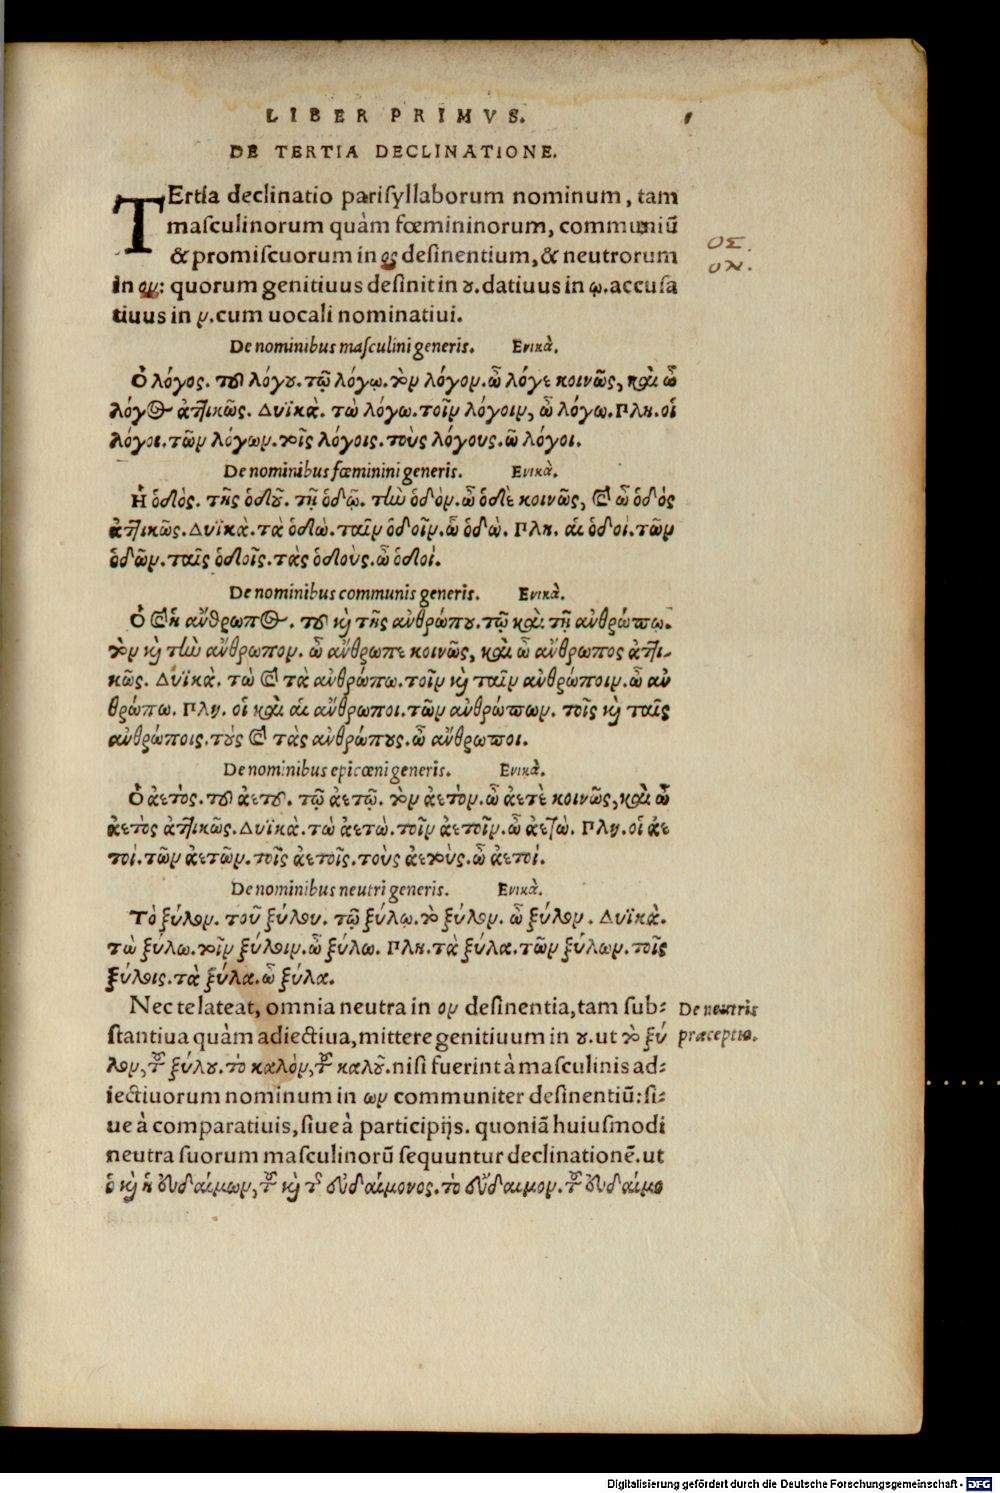 LIBER PRIMVS.
DE TERTIA DECLINATIONE.
TErtia declinatio pariſyllaborum nominum, tam
maſculinorum quàm fœmininorum, communiũ
& promiſcuorum in ος deſinentium, & neutrorum
in ον: quorum genitiuus deſinit in ȣ. datiuus in ῳ. accuſa
tiuus in ν. cum uocali nominatiui.
ΟΣ.
ΟΝ.
De nominibus maſculini generis. Ενικὰ.
Ὁ λόγος. τȣ͂ λόγȣ. τῷ λόγῳ. τὸν λόγον. ὦ λόγε κοινῶς, καὶ ὦ
λόγος ἀτ̓ικῶς. Δυϊκὰ. τὼ λόγω. τοῖν λόγοιν, ὦ λόγω. Πλη. οἱ
λόγοι. τῶν λόγων. τοῖς λόγοις. τοὺς λόγους. ὦ λόγοι.
De nominibus fœminini generis. Ενικὰ.
Ἡ ὁδὸς. τῆς ὁδȣ͂. τῇ ὁδῷ. τὴν ὁδὸν. ὦ ὁδὲ κοινῶς, καὶ ὦ ὁδός
ἀτ̓ικῶς. Δυϊκὰ. τὰ ὁδὼ. ταῖν ὁδοῖν. ὦ ὁδὼ. Πλη. αἱ ὁδοί. τῶν
ὁδῶν. ταῖς ὁδοῖς. τὰς ὁδοὺς. ὦ ὁδοί.
De nominibus communis generis. Ενικὰ.
Ὁ καὶ ἡ ἄνθρωπος. τȣ͂ καὶ τῆς ἀνθρώπȣ. τῷ καὶ τῇ ἀνθρώπῳ.
τὸν καὶ τὴν ἄνθρωπον. ὦ ἄνθρωπε κοινῶς, καὶ ὦ ἄνθρωπος ἀτ̓ι-
κῶς. Δυϊκὰ. τὼ καὶ τὰ ἀνθρώπω. τοῖν καὶ ταῖν ἀνθρώποιν. ὦ ἀν
θρώπω. Πλη. οἱ καὶ αἱ ἄνθρωποι. τῶν ἀνθρώπων. τοῖς καὶ ταῖς
ἀνθρώποις. τȣ̀ς καὶ τὰς ἀνθρώπȣς. ὦ ἄνθρωποι.
De nominibus epicœni generis. Ενικὰ.
Ὁ ἀετὸς. τȣ͂ ἀετȣ͂. τῷ ἀετῷ. τὸν ἀετὸν. ὦ ἀετὲ κοινῶς, καὶ ὦ
ἀετὸς ἀτ̓ικῶς. Δυϊκὰ. τὼ ἀετὼ. τοῖν ἀετοῖν. ὦ ἀετὼ. Πλη. οἱ ἀε
τοί. τῶν ἀετῶν. τοῖς ἀετοῖς. τοὺς ἀετοὺς. ὦ ἀετοί.
De nominibus neutri generis. Ενικὰ.
Τὸ ξύλον. τοῦ ξύλου. τῷ ξύλῳ. τὸ ξύλον. ὦ ξύλον. Δυϊκὰ.
τὼ ξύλω. τοῖν ξύλοιν. ὦ ξύλω. Πλη. τὰ ξύλα. τῶν ξύλων. τοῖς
ξύλοις. τὰ ξύλα. ὦ ξύλα.
Nec te lateat, omnia neutra in ον deſinentia, tam ſub-
ſtantiua quàm adiectiua, mittere genitiuum in ȣ. ut τὸ ξύ
λον, τȣ͂ ξύλȣ. τὸ καλὸν, τȣ͂ καλȣ͂. niſi fuerint à maſculinis ad-
iectiuorum nominum in ων communiter deſinentiũ: ſi-
ue à comparatiuis, ſiue à participijs. quoniã huiuſmodi
neutra ſuorum maſculinorũ ſequuntur declinationẽ. ut
ὁ καὶ ἡ εὐδαίμων, τȣ͂ καὶ τῆς εὐδαίμονος. τὸ εὔδαιμον. τȣ͂ εὐδαίμο
De neutris
præceptio.
Digitalisierung gefördert durch die Deutsche Forschungsgemeinschaft - DFG